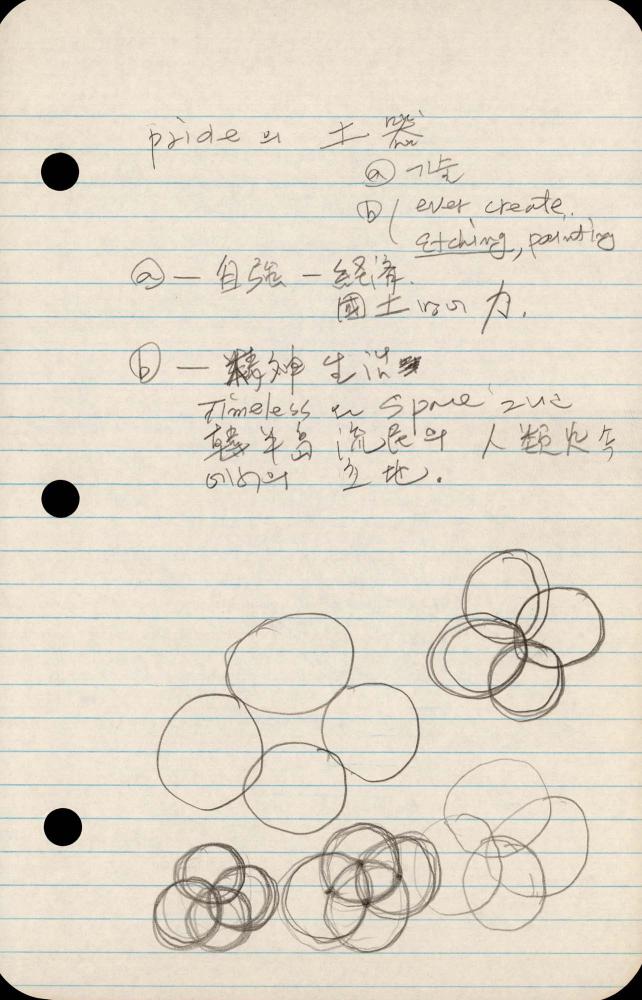 pride의 土器
ⓐ 기능
ⓑ ( ever create.
etching, painting
ⓐ — 自強 — 経済.
國土 力.
ⓑ — 精神 生活
Timeless space 그리고
韓半島 流民의 人類
立地.